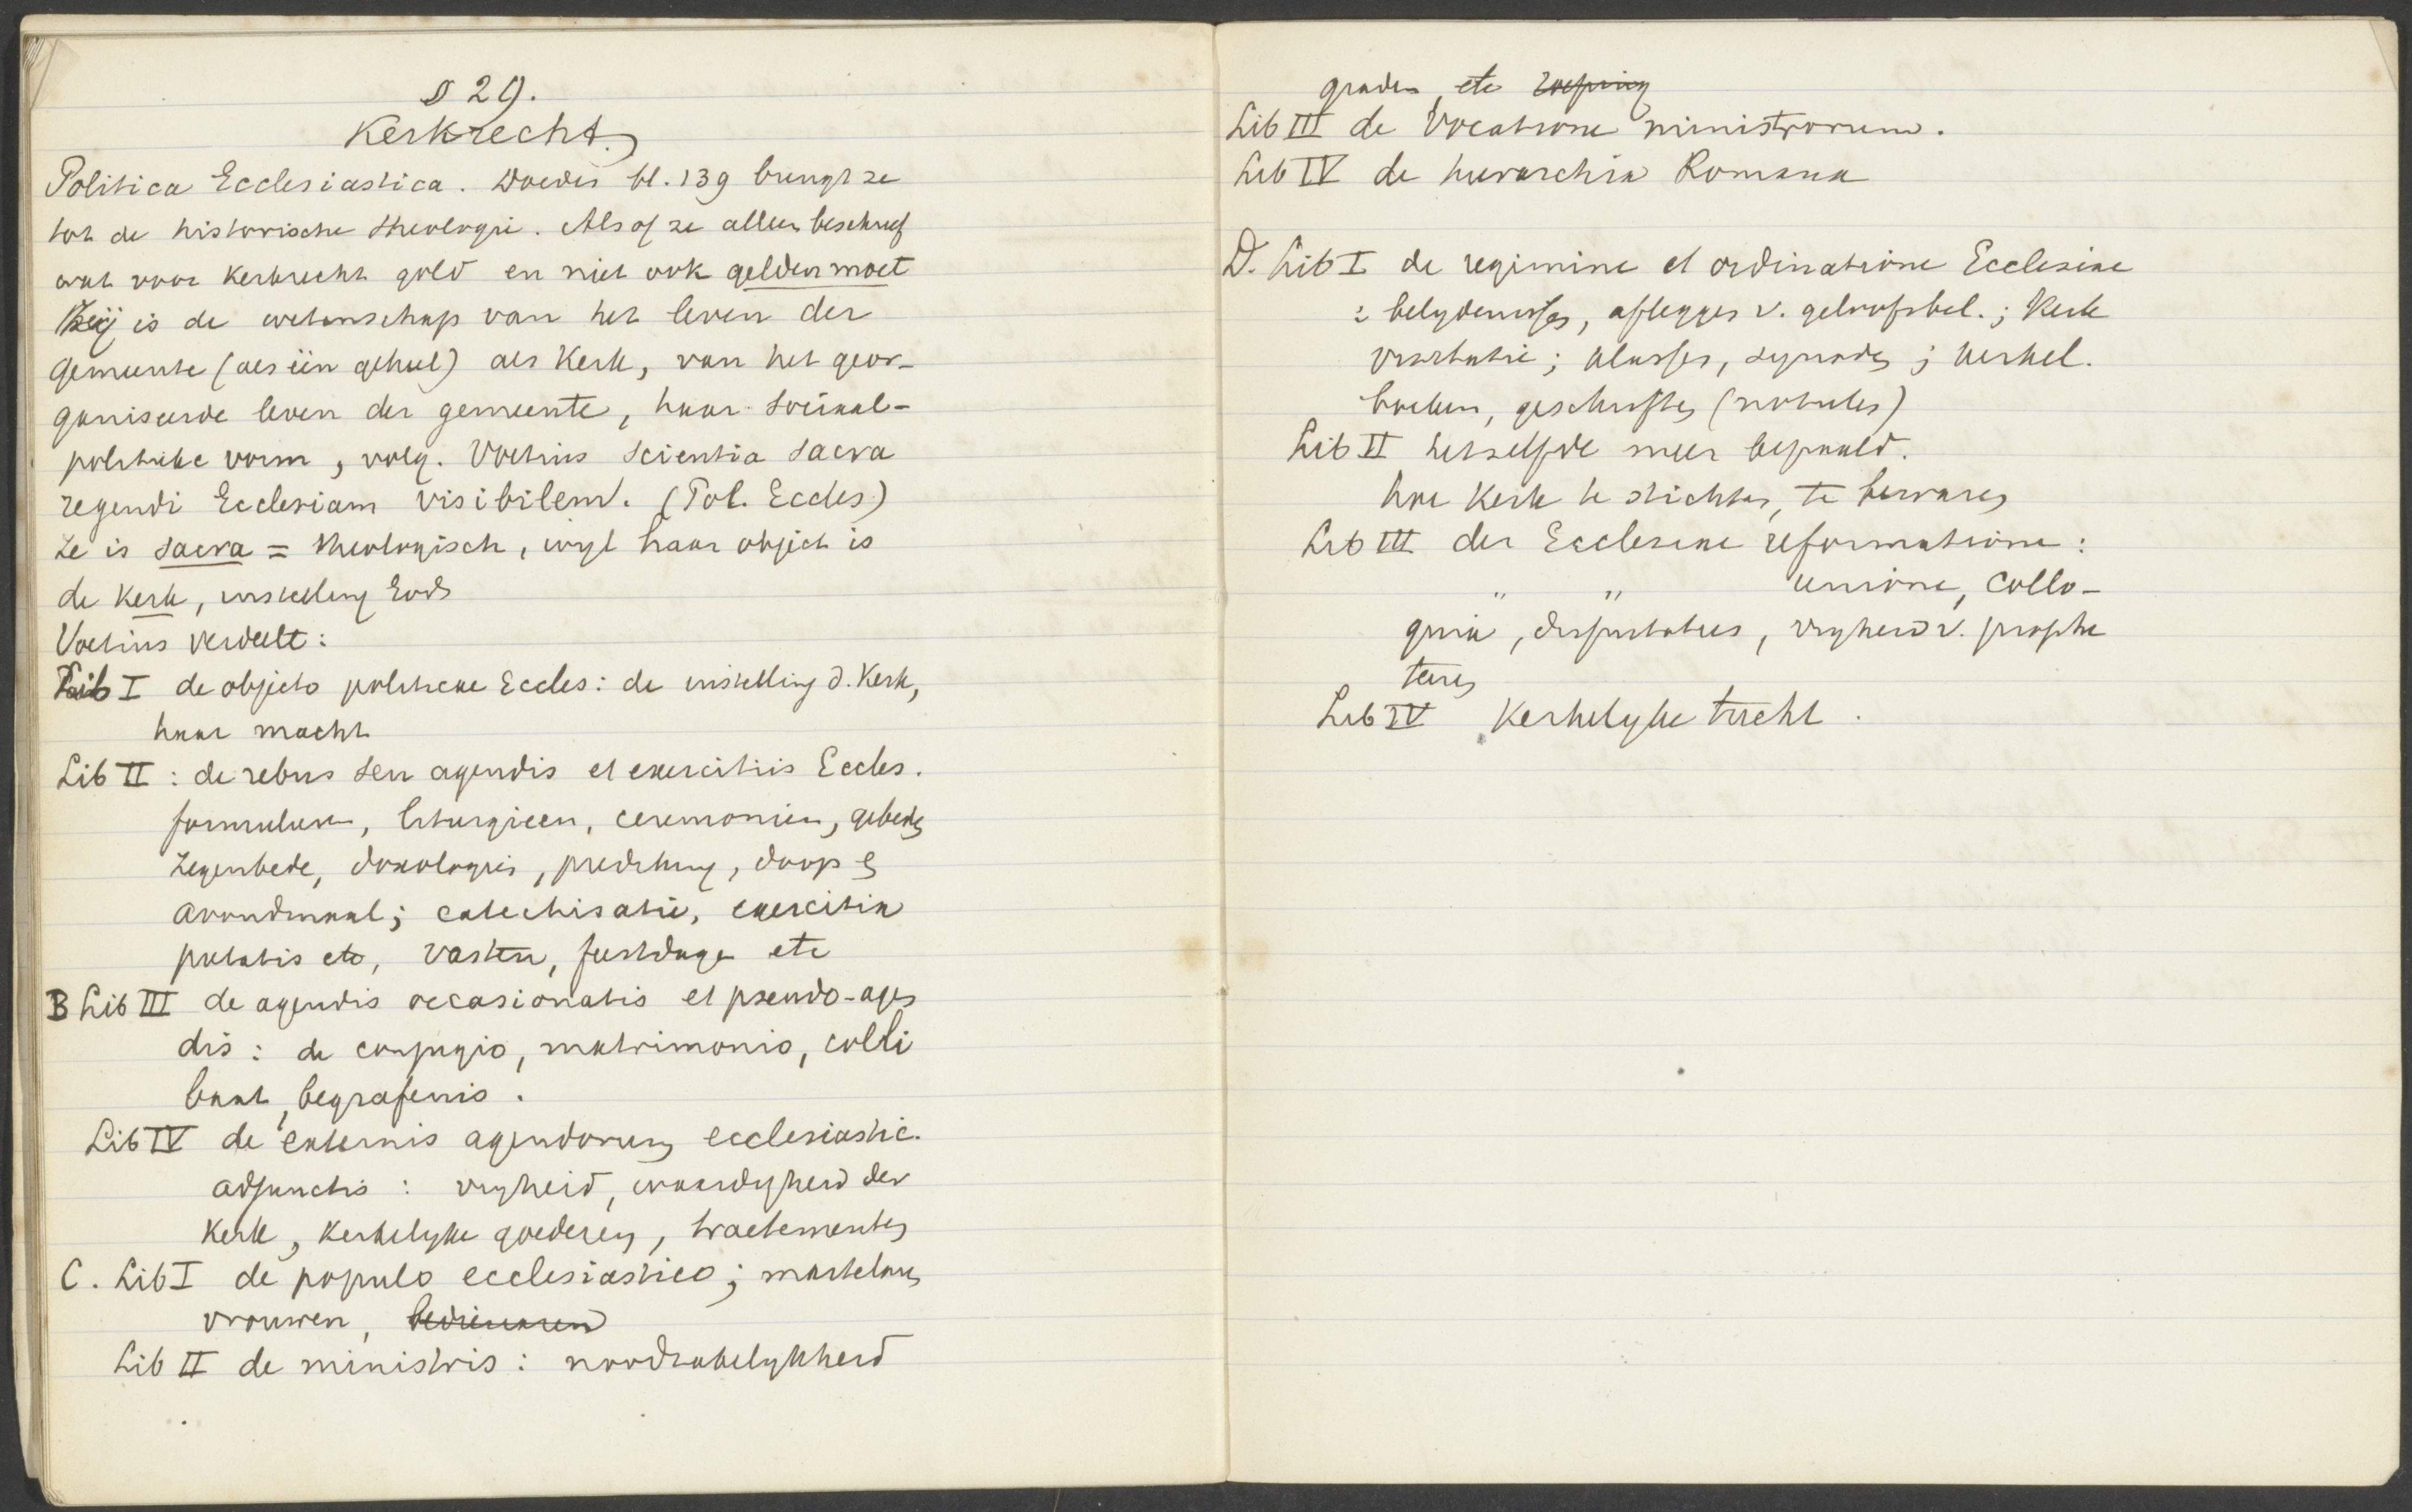 § 29.
Kerkrecht.
Politica Ecclesiastica. Doedes bl. 139 brengt ze
tot de historische theologie. Alsof ze alleen beschreef
wat voor kerkrecht gold en niet ook gelden moet
Zij is de wetenschap van het leven der
gemeente (als één geheel) als Kerk, van het geor-
ganiseerde leven der gemeente, haar sociaal-
politieke vorm, volg. Voetius scientia sacra
regendi Ecclesiam visibilem. (Pol. Eccles)
Ze is sacra = theologisch, wijl haar object is
de Kerk, instelling Gods
Voetius verdeelt:
Lib I de objecto politicae Eccles: de instelling d. Kerk,
haar macht
Lib II : de rebus seu agendis et exercitiis Eccles.
formulieren, liturgieen, ceremonien, gebeden
zegenbede, doxologieën, prediking, doop en
avondmaal; catechisatie, exercitia
pietatis etc, vasten, feestdagen etc
B Lib III de agendis occasionatis et pseudo-agen
dis : de conjugio, matrimonio, coeli
baat, begrafenis.
Lib IV de externis agendorum ecclesiastic.
adjunctis : vrijheid, waardigheid der
Kerk, Kerkelijke goederen, tractementen
C. Lib I de populo ecclesiastico; martelaren
vrouwen, bedienaren
Lib II de ministris : noodzakelijkheid
graden, etc roeping
Lib III de Vocatione ministrorum.
Lib IV de hierarchia Romana
D. Lib I de regimine et ordinatione Ecclesiae
: belijdenissen, afleggen v. geloofsbel.; Kerk
visitatie; klassen, synoden; Kerkel.
boeken, geschriften (notulen)
Lib II hetzelfde meer bepaald.
hoe Kerk te stichten, te bewaren
Lib III der Ecclesiae reformatione :
" " unione, collo-
quia, disputaties, vrijheid v. profe
teren
Lib IV Kerkelijke tucht.